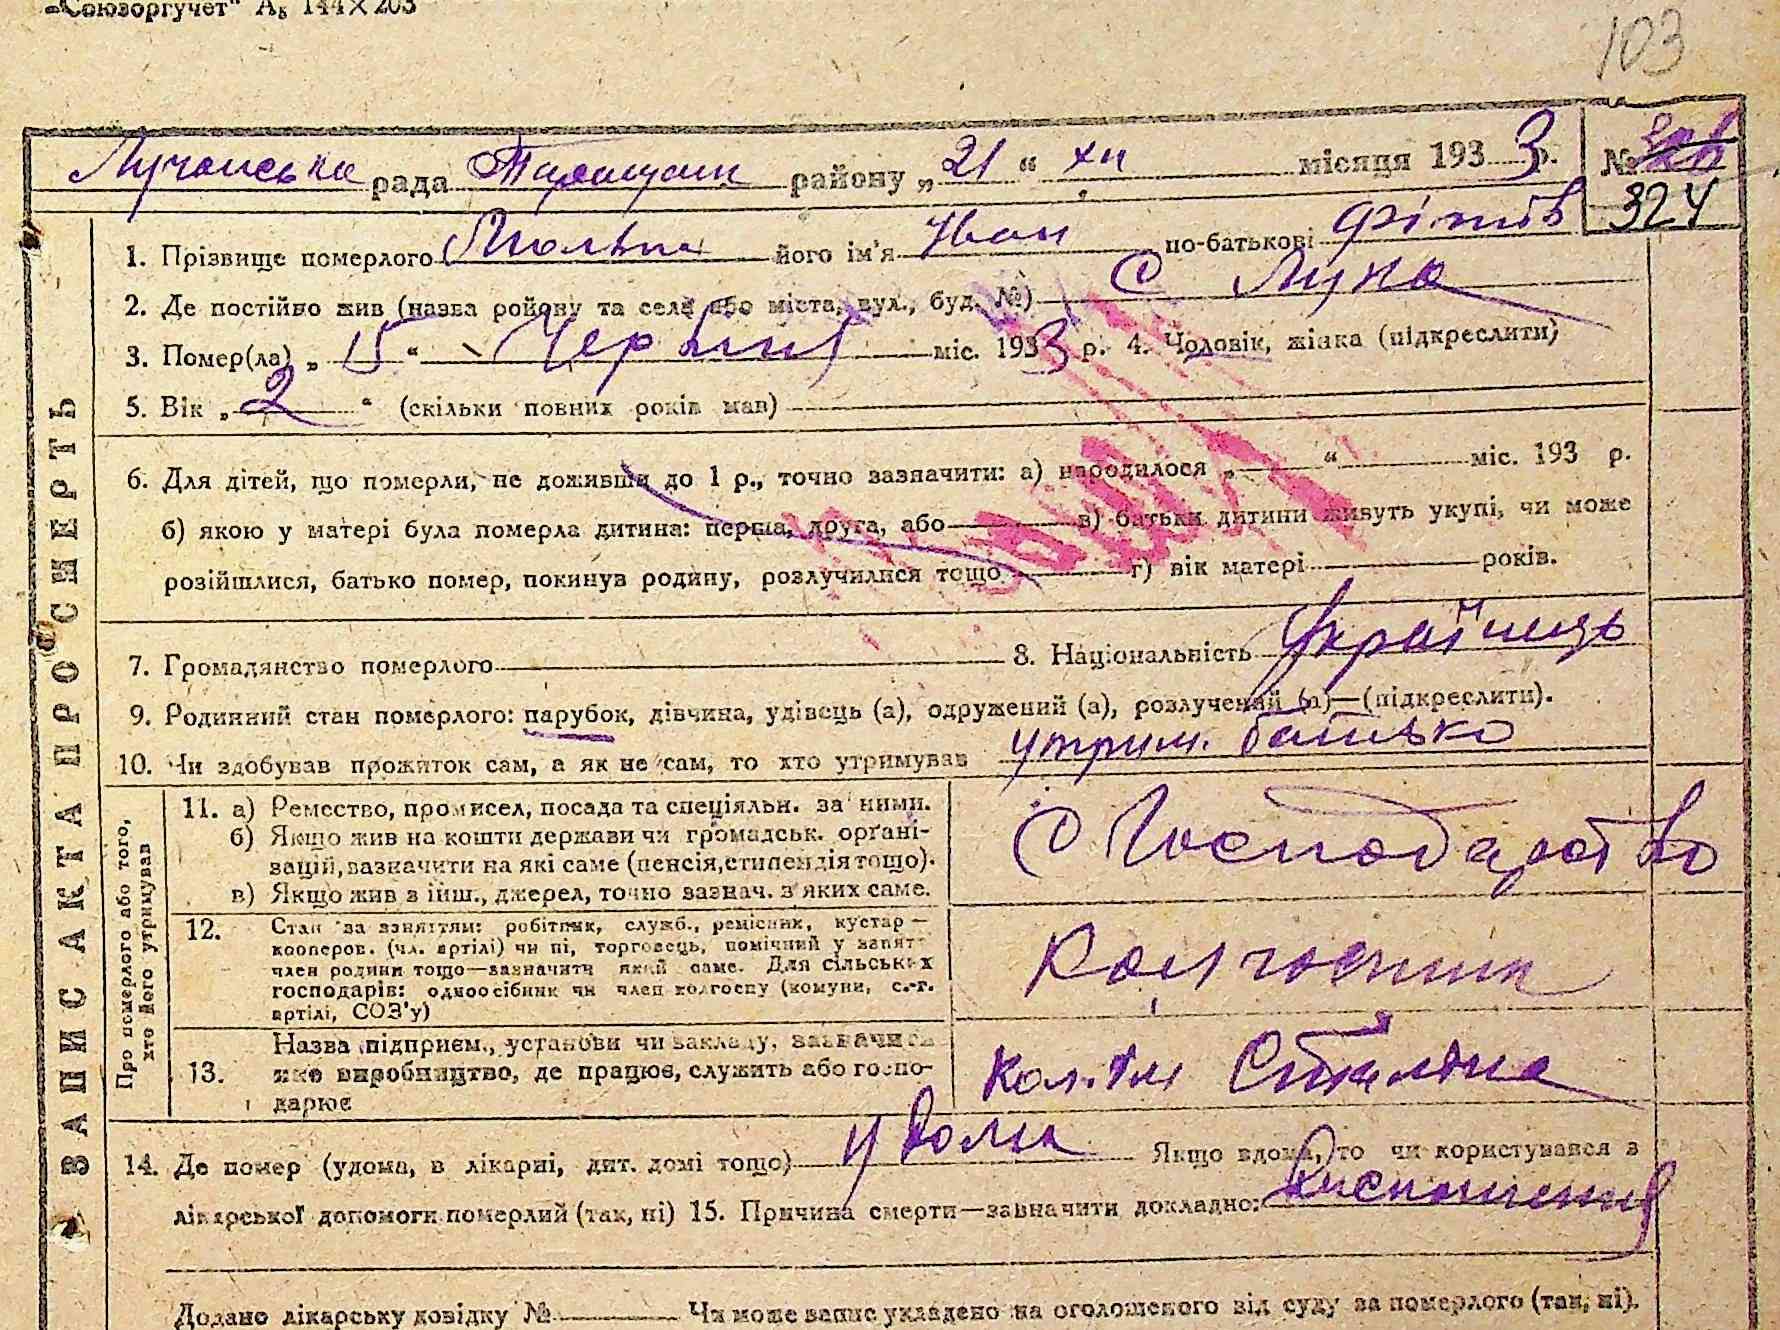 „Союзоргучет“ А₅ 144×203
103
Лучанська рада Таращан району „21“ XII місяця 1933 р. №
324
1. Прізвище померлого його ім'я Иван по-батькові
2. Де постійно жив (назва району та села або міста, вул., буд. №) С Лука
3. Помер(ла) „15“ Червня міс. 1933 р. 4. Чоловік, жінка (підкреслити)
5. Вік „2“ (скільки повних років мав)
6. Для дітей, що померли, не доживши до 1 р., точно зазначити: а) народилося „ “ міс. 193 р.
б) якою у матері була померла дитина: перша, друга, або в) батьки дитини живуть укупі, чи може
розійшлися, батько помер, покинув родину, розлучилися тощо г) вік матері років.
7. Громадянство померлого 8. Національність Українець
9. Родинний стан померлого: парубок, дівчина, удівець (а), одружений (а), розлучений (а)—(підкреслити).
10. Чи здобував прожиток сам, а як не сам, то хто утримував утрим. батько
ЗАПИС АКТА ПРО СМЕРТЬ
Про померлого або того, хто його утримував
11. а) Ремество, промисел, посада та спеціяльн. за ними.
б) Якщо жив на кошти держави чи громадськ. орґані-
зацій, зазначити на які саме (пенсія, стипендія тощо).
в) Якщо жив з інш., джерел, точно зазнач. з яких саме.
С Господарство
12. Стан за заняттям: робітник, служб., ремісник, кустар—
кооперов. (чл. артілі) чи ні, торговець, помічний у занят.
член родини тощо—зазначити який саме. Для сільських
господарів: одноосібник чи член колгоспу (комуни, с.-г.
артілі, СОЗ'у)
Колгоспник
13. Назва підприєм., установи чи закладу, зазначити
яке виробництво, де працює, служить або госпо-
дарює
Сталіна
14. Де помер (удома, в лікарні, дит. домі тощо) у дома Якщо вдома, то чи користувався з
лікарської допомоги померлий (так, ні) 15. Причина смерти—зазначити докладно: Виснаження
Додано лікарську довідку № Чи може запис укладено на оголошеного від суду за померлого (так, ні).